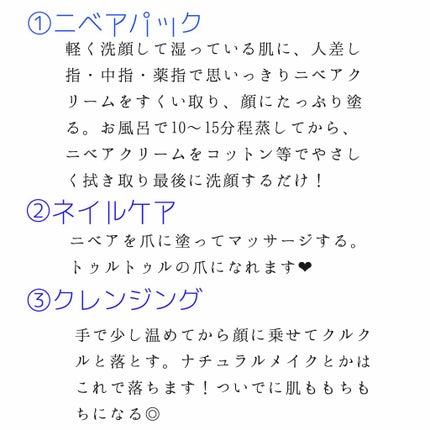 ①ニベアパック
軽く洗顔して湿っている肌に、人差し
指・中指・薬指で思いっきりニベアク
リームをすくい取り、顔にたっぷり塗
る。お風呂で10〜15分程蒸してから、
ニベアクリームをコットン等でやさし
く拭き取り最後に洗顔するだけ！
②ネイルケア
ニベアを爪に塗ってマッサージする。
トゥルトゥルの爪になれます❤
③クレンジング
手で少し温めてから顔に乗せてクルク
ルと落とす。ナチュラルメイクとかは
これで落ちます！ついでに肌ももちも
ちになる◎